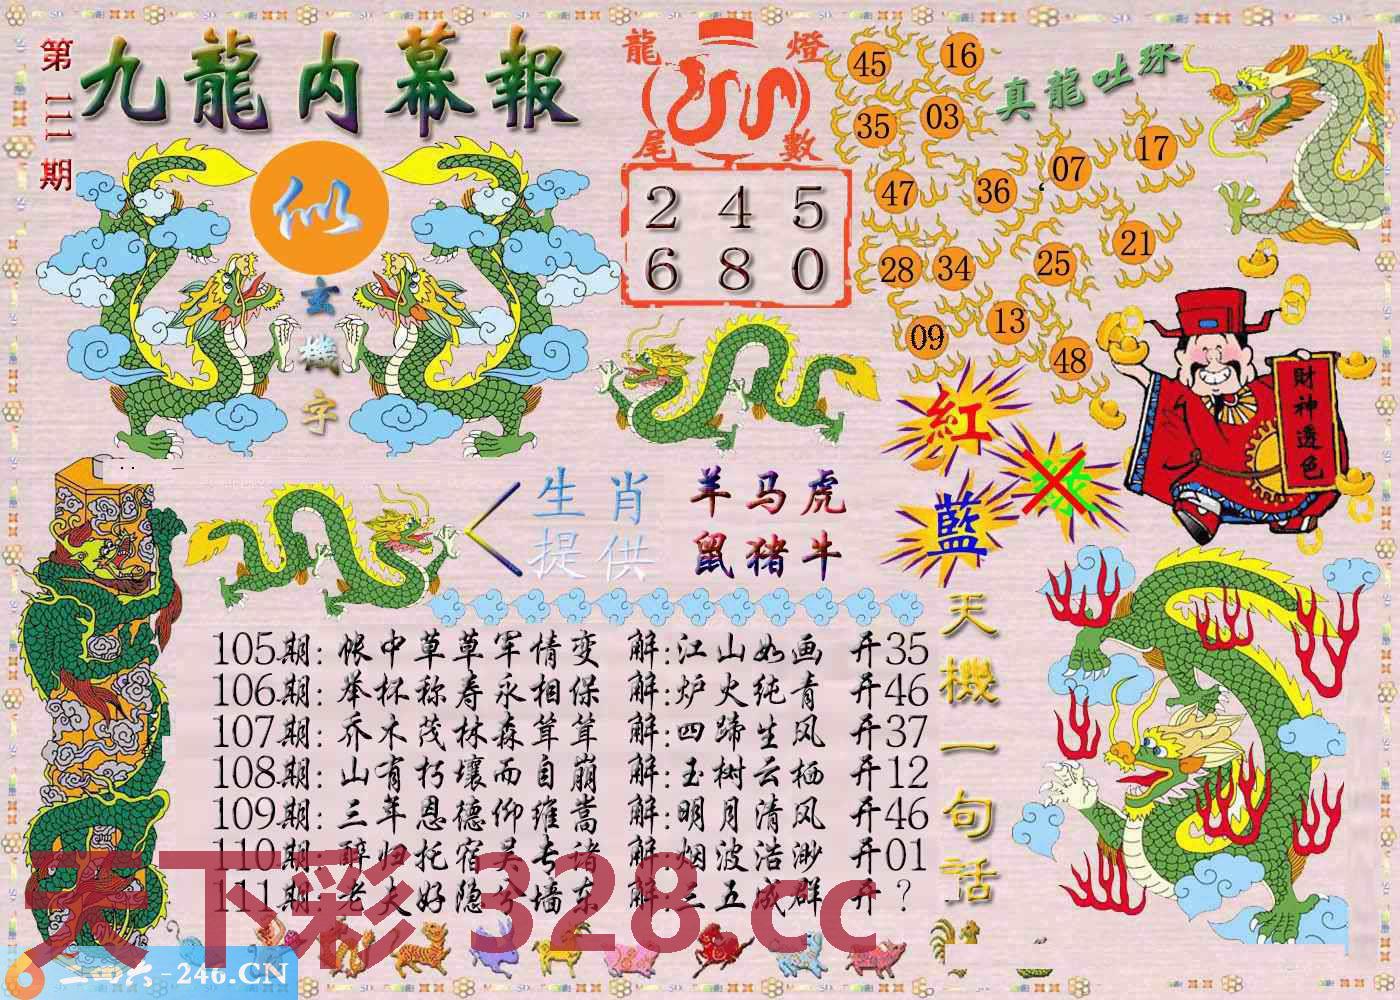 第111期
九龍内幕報
似
玄機字
龍燈
尾數
2 4 5
6 8 0
真龍吐珠
45 16
35 03
47 36 07 17
28 34 25 21
09 13 48
財神透色
紅
藍
生肖
提供
羊马虎
鼠猪牛
天機一句話
105期: 帐中草草军情变 解:江山如画 开35
106期: 举杯称寿永相保 解:炉火纯青 开46
107期: 乔木茂林森茸茸 解:四蹄生风 开37
108期: 山有朽壤而自崩 解:玉树云栖 开12
109期: 三年恩德仰维嵩 解:明月清风 开46
110期: 醉归托宿吴专诸 解:烟波浩渺 开01
111期: 老夫好隐兮墙东 解:三五成群 开?
天下彩 328.cc
二四六-246.CN